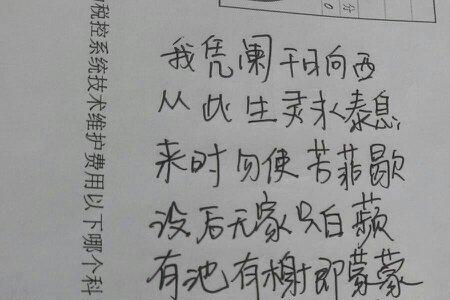 我凭阑干日向西
从此生灵求泰息
来时勿使苦菲歇
没后无家只白蘋
有池有榭即蒙蒙
税控系统技术维护费用以下哪个科
分
0